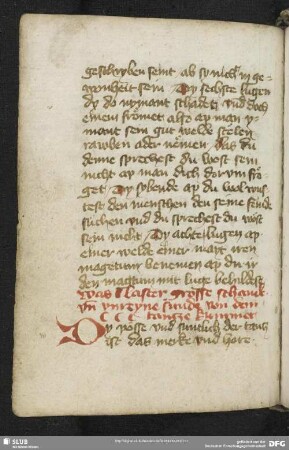 geschryben seint ab sy nicht in ge-
wonheit sein Dy sechste lugen
dy do nymant schadet vnd doch
einem fromet also ap man y-
mant sein gut welde stelen
rawben ader nemen das du
denne sprechest du west sein
nicht ap man dich dorvm fro-
get Dy sobende ap du wol wus-
test den menschen den seine feinde
suchen vnd du sprechest du wost
sein nicht Dy achte lugen ap
einer welde einer mayt iren
magetum benemen ap du ir
den magtum mit luge behildest
Was laster grosse schande
vn vnreyne sunde von dem
tancze kummet
Wy bosse vnd suntlich der tancz
ist das merke vnd hore
SLUB
DFG